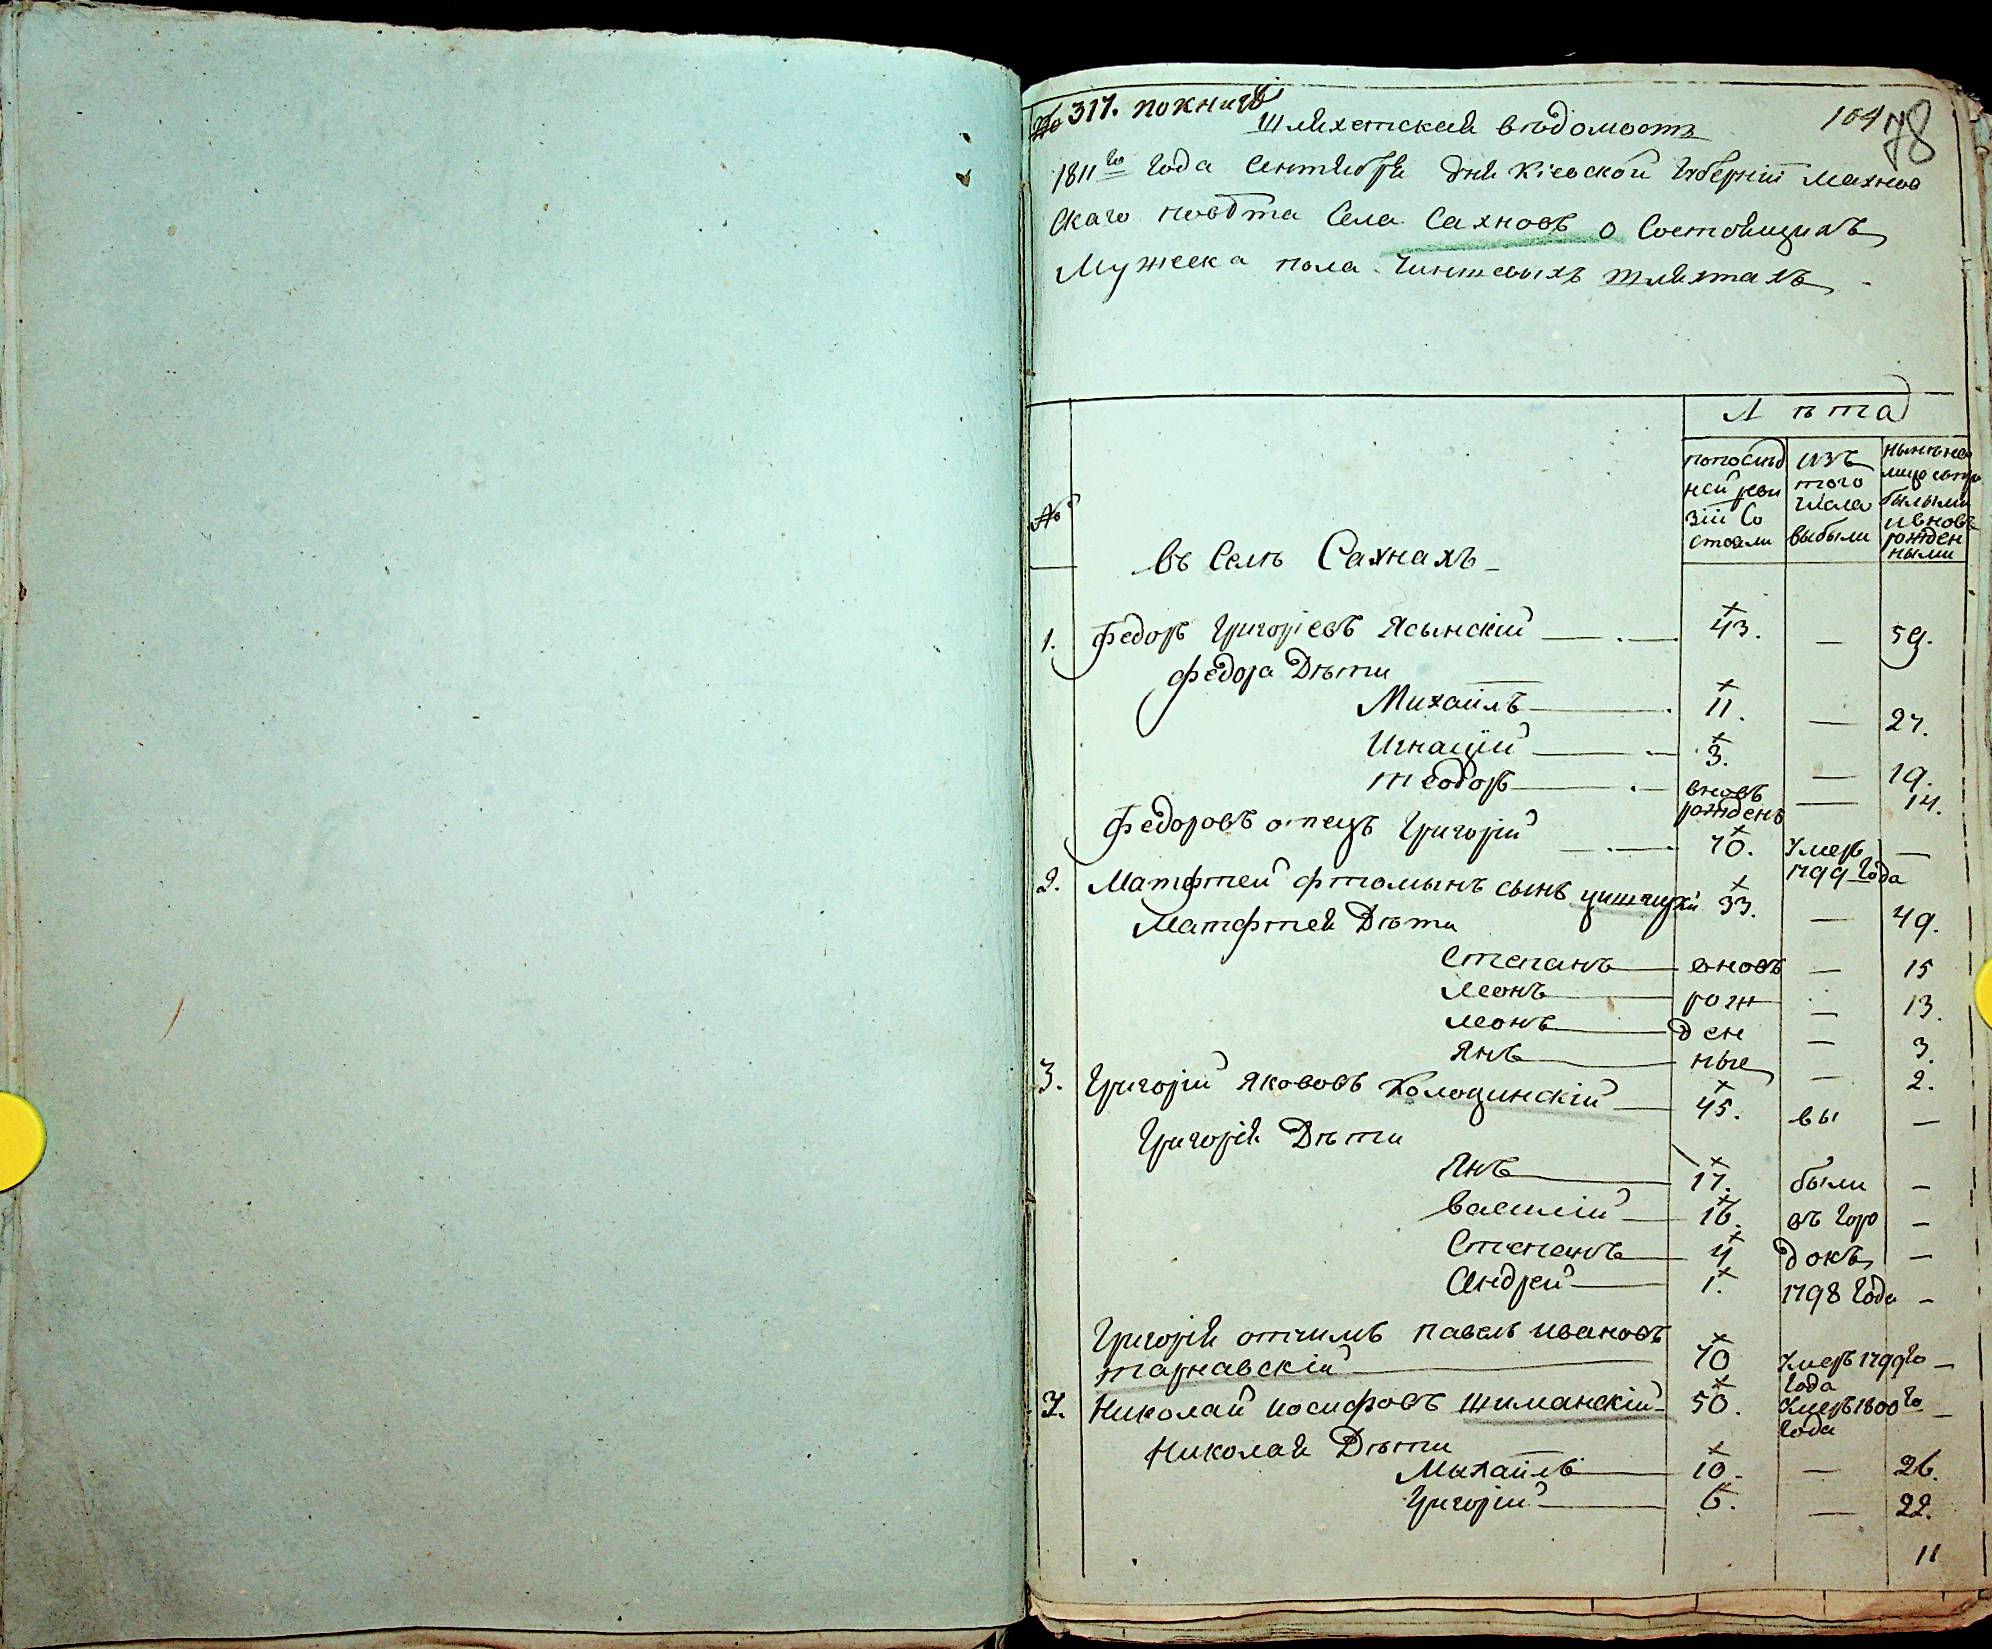 № 317. по книгѣ
104 78
Шляхетская вѣдомость
1811го года Сентября дня Кіевской Губерніи Махнов
скаго повѣта Села Сахновъ о Состоящихъ
Мужеска пола Чиншевыхъ Шляхтахъ
Лѣта
№
попослѣд
ней реви
зіи Со
стояли
изъ
того
числа
выбыли
нынѣ на
лицо съ при
былыми
и вновь
рожден
ными
въ Селѣ Сахнахъ
1. Федоръ Григоріевъ Ясынскій 43. — 59.
Федора Дѣти
Михаилъ 11. — 27.
Игнацій 3. — 19.
Теодоръ вновь рожденъ — 14.
Федоровъ отецъ Григорій 70. умеръ 1799 Года —
2. Матфтей Фтомынъ сынъ 33. — 49.
Матфтея Дѣти
Степанъ вновь — 15
Леонъ рож — 13.
Леонъ ден — 3.
Янъ ные — 2.
3. Григорій Якововъ Колоцинскій 45. вы —
Григорія Дѣти
Янъ 17. были —
Василій 16. въ Горо —
Степанъ 4 докъ —
Андрей 1. 1798 Года —
Григорія отчимъ Павелъ Ивановъ
Тарнавскій 70 умеръ 1799го Года —
4. Николай Іосифовъ Шиманскій 50. умеръ 1800го Года —
Николая Дѣти
Михаилъ 10. — 26.
Григорій 6. — 22.
11